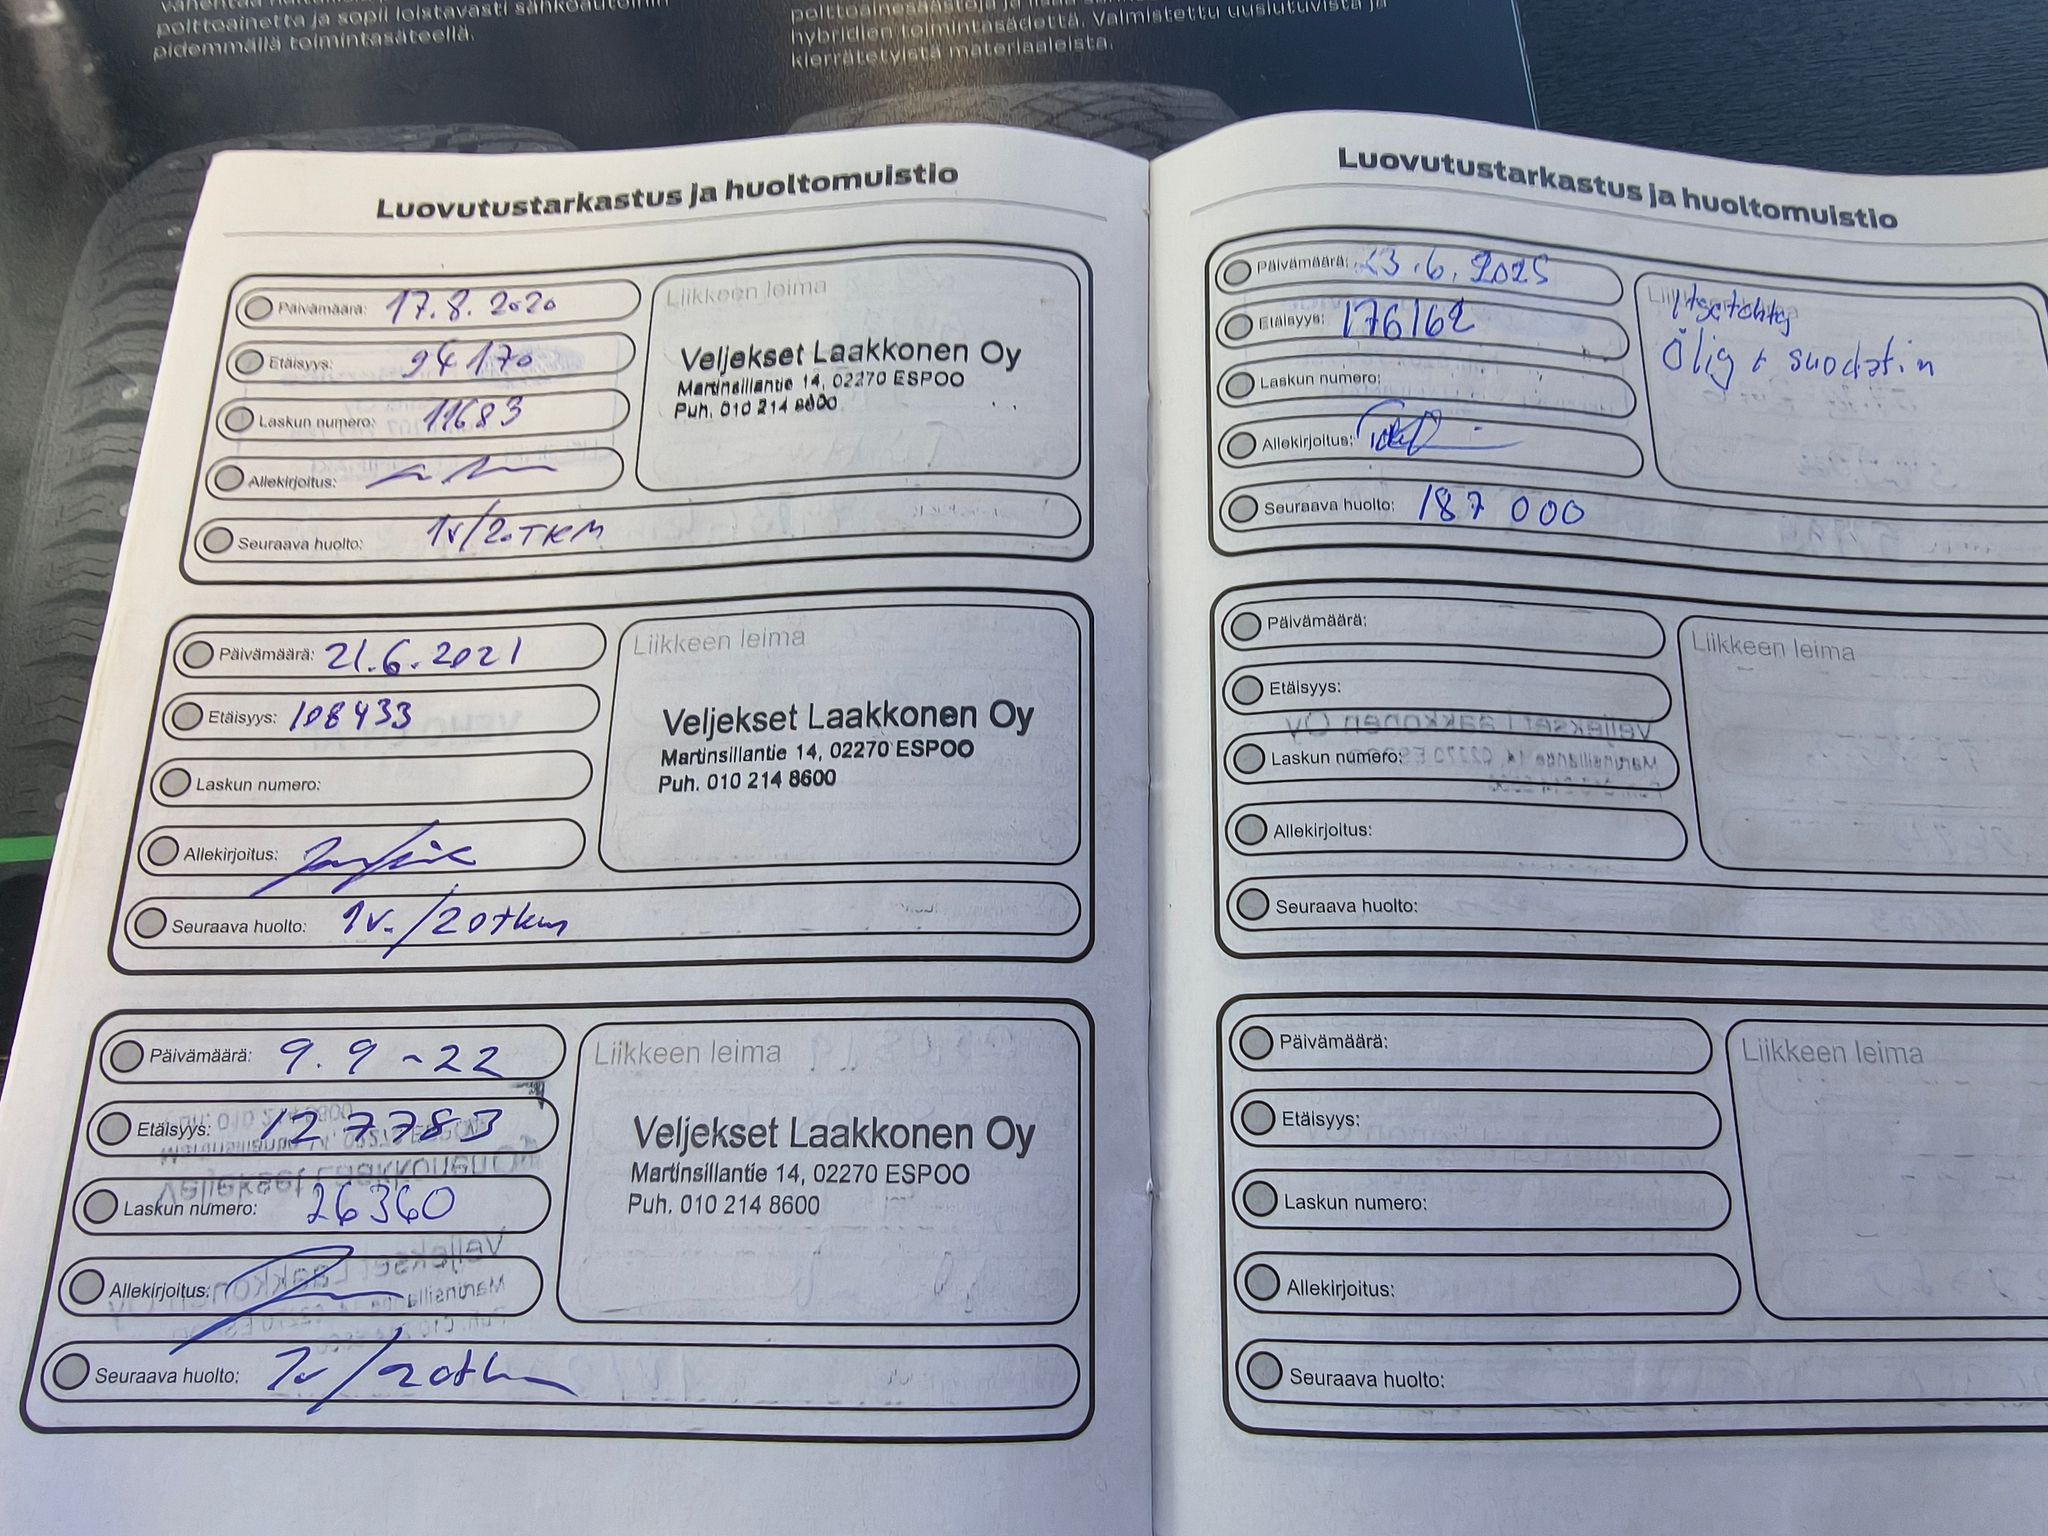 polttoainetta ja sopii loistavasti sähköautoihin
pidemmällä toimintasäteellä.
hybridien toimintasädettä. Valmistettu uusiutuvista ja
kierrätetyistä materiaaleista.
Luovutustarkastus ja huoltomuistio
Päivämäärä: 17.8.2020
Etäisyys: 94170
Laskun numero: 11683
Allekirjoitus:
Seuraava huolto: 1v/2.TKM
Liikkeen leima
Veljekset Laakkonen Oy
Martinsillantie 14, 02270 ESPOO
Puh. 010 214 8600
Päivämäärä: 21.6.2021
Etäisyys: 108433
Laskun numero:
Allekirjoitus:
Seuraava huolto: 1v./20tkm
Liikkeen leima
Veljekset Laakkonen Oy
Martinsillantie 14, 02270 ESPOO
Puh. 010 214 8600
Päivämäärä: 9.9-22
Etäisyys: 127783
Laskun numero: 26360
Allekirjoitus:
Seuraava huolto: 1v/20tkm
Liikkeen leima
Veljekset Laakkonen Oy
Martinsillantie 14, 02270 ESPOO
Puh. 010 214 8600
Luovutustarkastus ja huoltomuistio
Päivämäärä: 23.6.2025
Etäisyys: 176162
Laskun numero:
Allekirjoitus:
Seuraava huolto: 187 000
Liikkeen leima
itsetehty
Öljy + suodatin
Päivämäärä:
Etäisyys:
Laskun numero:
Allekirjoitus:
Seuraava huolto:
Liikkeen leima
Päivämäärä:
Etäisyys:
Laskun numero:
Allekirjoitus:
Seuraava huolto:
Liikkeen leima